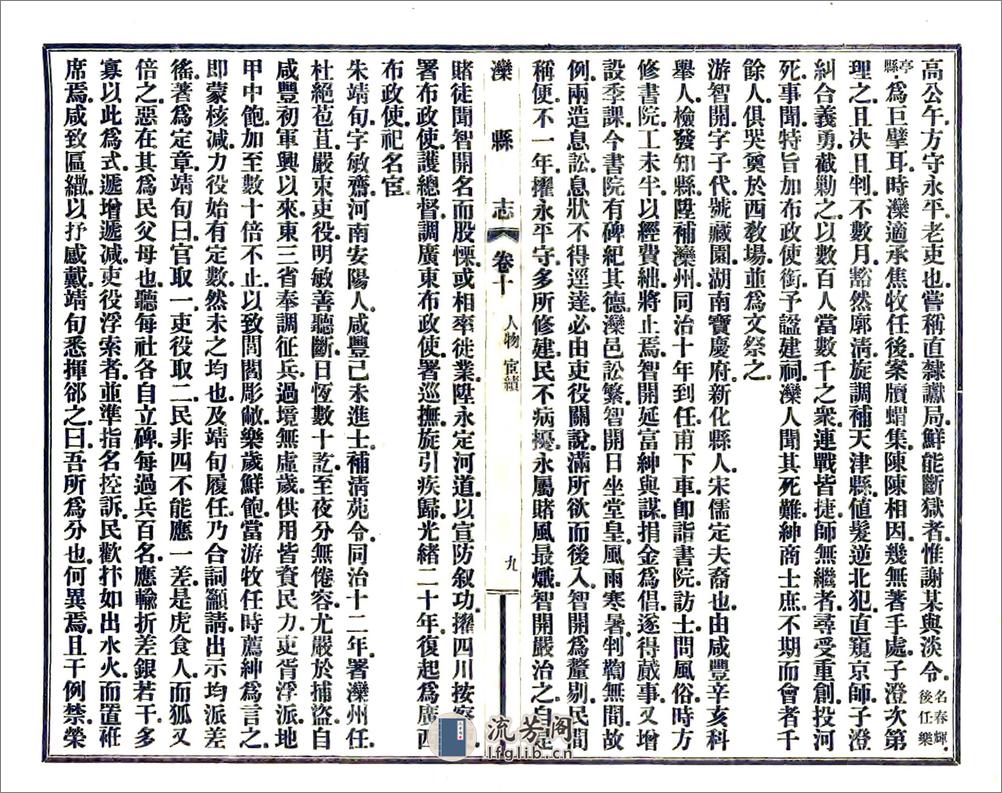 高公午方守永平老吏也嘗稱直隸讞局鮮能斷獄者惟謝某與淡令名春輝後任樂
亭縣爲巨擘耳時灤適承焦牧任後案牘蝟集陳陳相因幾無著手處子澄次第
理之且決且判不數月豁然廓淸旋調補天津縣値髮逆北犯直窺京師子澄
糾合義勇截勦之以數百人當數千之衆連戰皆捷師無繼者尋受重創投河
死事聞特旨加布政使銜予諡建祠灤人聞其死難紳商士庶不期而會者千
餘人俱哭奠於西敎場並爲文祭之
游智開字子代號藏園湖南寶慶府新化縣人宋儒定夫裔也由咸豐辛亥科
舉人檢發知縣陞補灤州同治十年到任甫下車卽詣書院訪士問風俗時方
修書院工未半以經費絀將止焉智開延富紳與謀捐金爲倡遂得蕆事又增
設季課今書院有碑紀其德灤邑訟繁智開日坐堂皇風雨寒暑判鞫無間故
例兩造息訟息狀不得逕達必由吏役關說滿所欲而後入智開爲釐剔民間
稱便不一年擢永平守多所修建民不病擾永屬賭風最熾智開嚴治之自是
灤縣志 卷十 人物 宦績 九
賭徒聞智開名而股慄或相率徙業陞永定河道以宣防叙功擢四川按察
署布政使護總督調廣東布政使署巡撫旋引疾歸光緖二十年復起爲廣西
布政使祀名宦
朱靖旬字敏齋河南安陽人咸豐己未進士補淸苑令同治十二年署灤州任
杜絕苞苴嚴束吏役明敏善聽斷日恆數十訖至夜分無倦容尤嚴於捕盜自
咸豐初軍興以來東三省奉調征兵過境無虛歲供用皆資民力吏胥浮派地
甲中飽加至數十倍不止以致閭閻彫敝樂歲鮮飽當游牧任時薦紳爲言之
卽蒙核減力役始有定數然未之均也及靖旬履任乃合詞籲請出示均派差
徭著爲定章靖旬曰官取一吏役取二民非四不能應一差是虎食人而狐又
倍之惡在其爲民父母也聽每社各自立碑每過兵百名應輸折差銀若干多
寡以此爲式遞增遞減吏役浮索者並準指名控訴民歡抃如出水火而置袵
席焉咸致區繖以抒感戴靖旬悉揮郤之曰吾所爲分也何異焉且干例禁榮
流芳阁
lfglib.cn